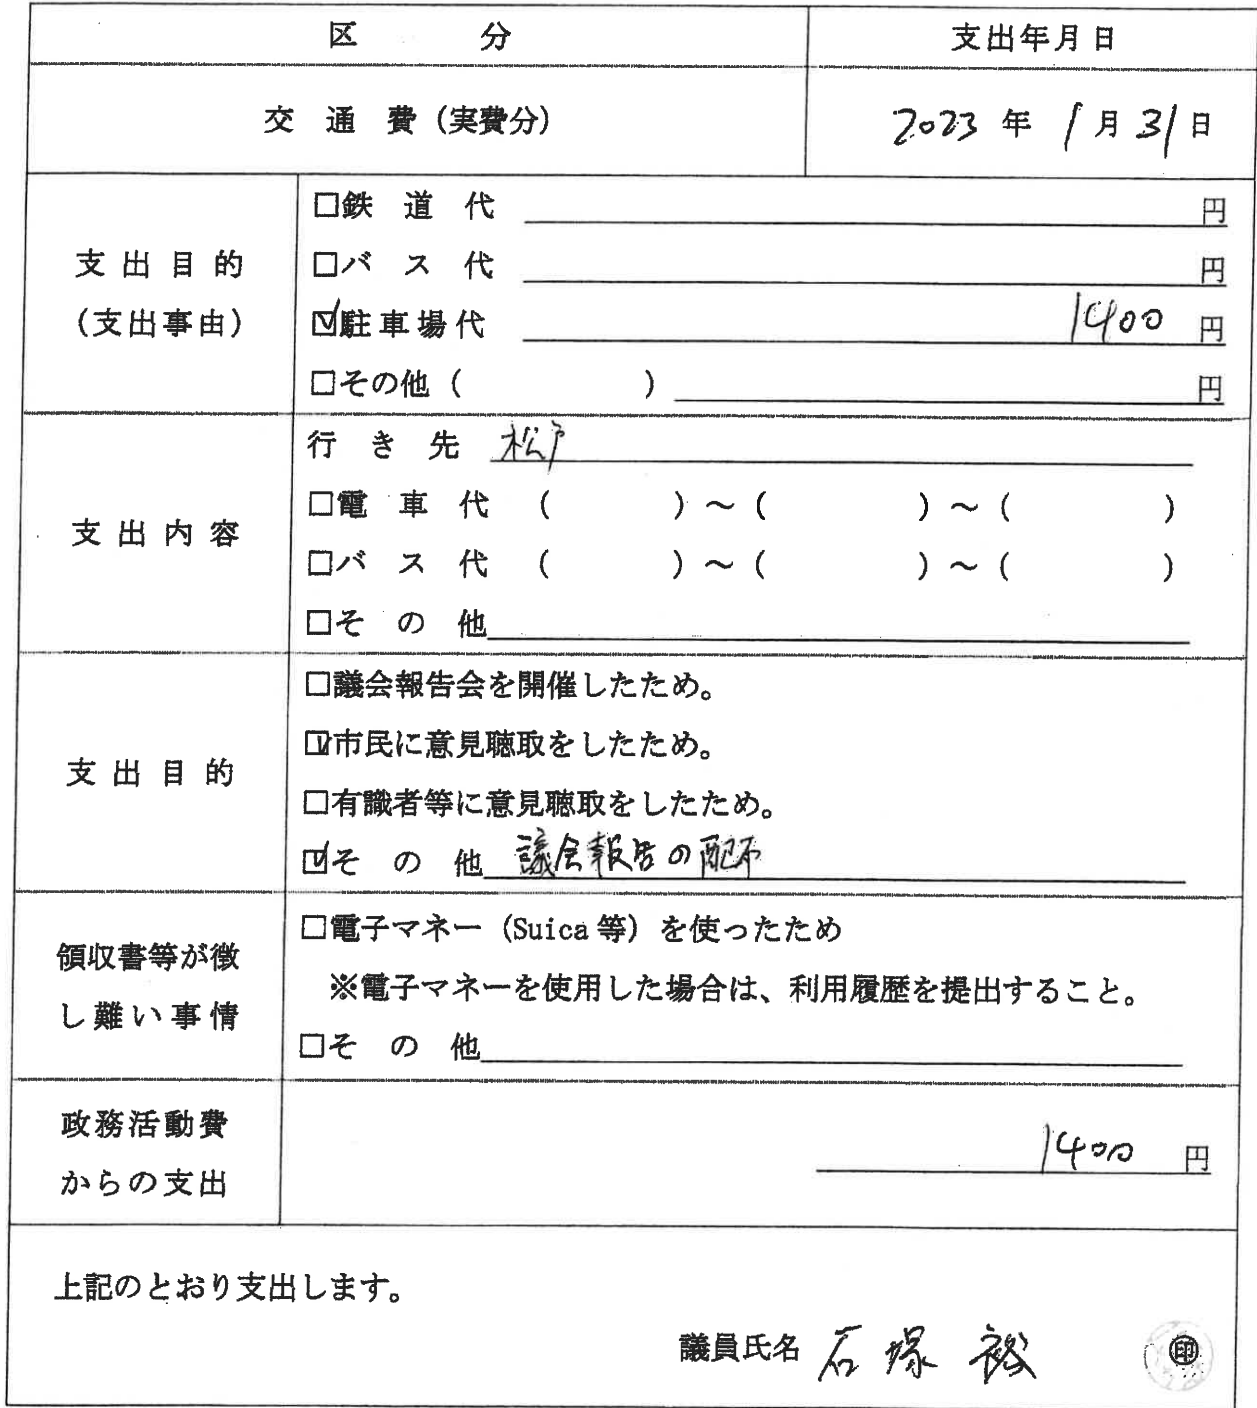 区 分 支出年月日
交 通 費 (実費分) 2023 年 1 月 31 日
支 出 目 的
(支出事由)
□鉄 道 代 円
□バ ス 代 円
☑駐車場代 1400 円
□その他 ( ) 円
支 出 内 容
行 き 先 松戸
□電 車 代 ( ) ～ ( ) ～ ( )
□バ ス 代 ( ) ～ ( ) ～ ( )
□そ の 他
支 出 目 的
□議会報告会を開催したため。
☑市民に意見聴取をしたため。
□有識者等に意見聴取をしたため。
☑そ の 他 議会報告の配布
領収書等が徴
し難い事情
□電子マネー (Suica 等) を使ったため
※電子マネーを使用した場合は、利用履歴を提出すること。
□そ の 他
政務活動費
からの支出
1400 円
上記のとおり支出します。
議員氏名 石塚 裕 ㊞